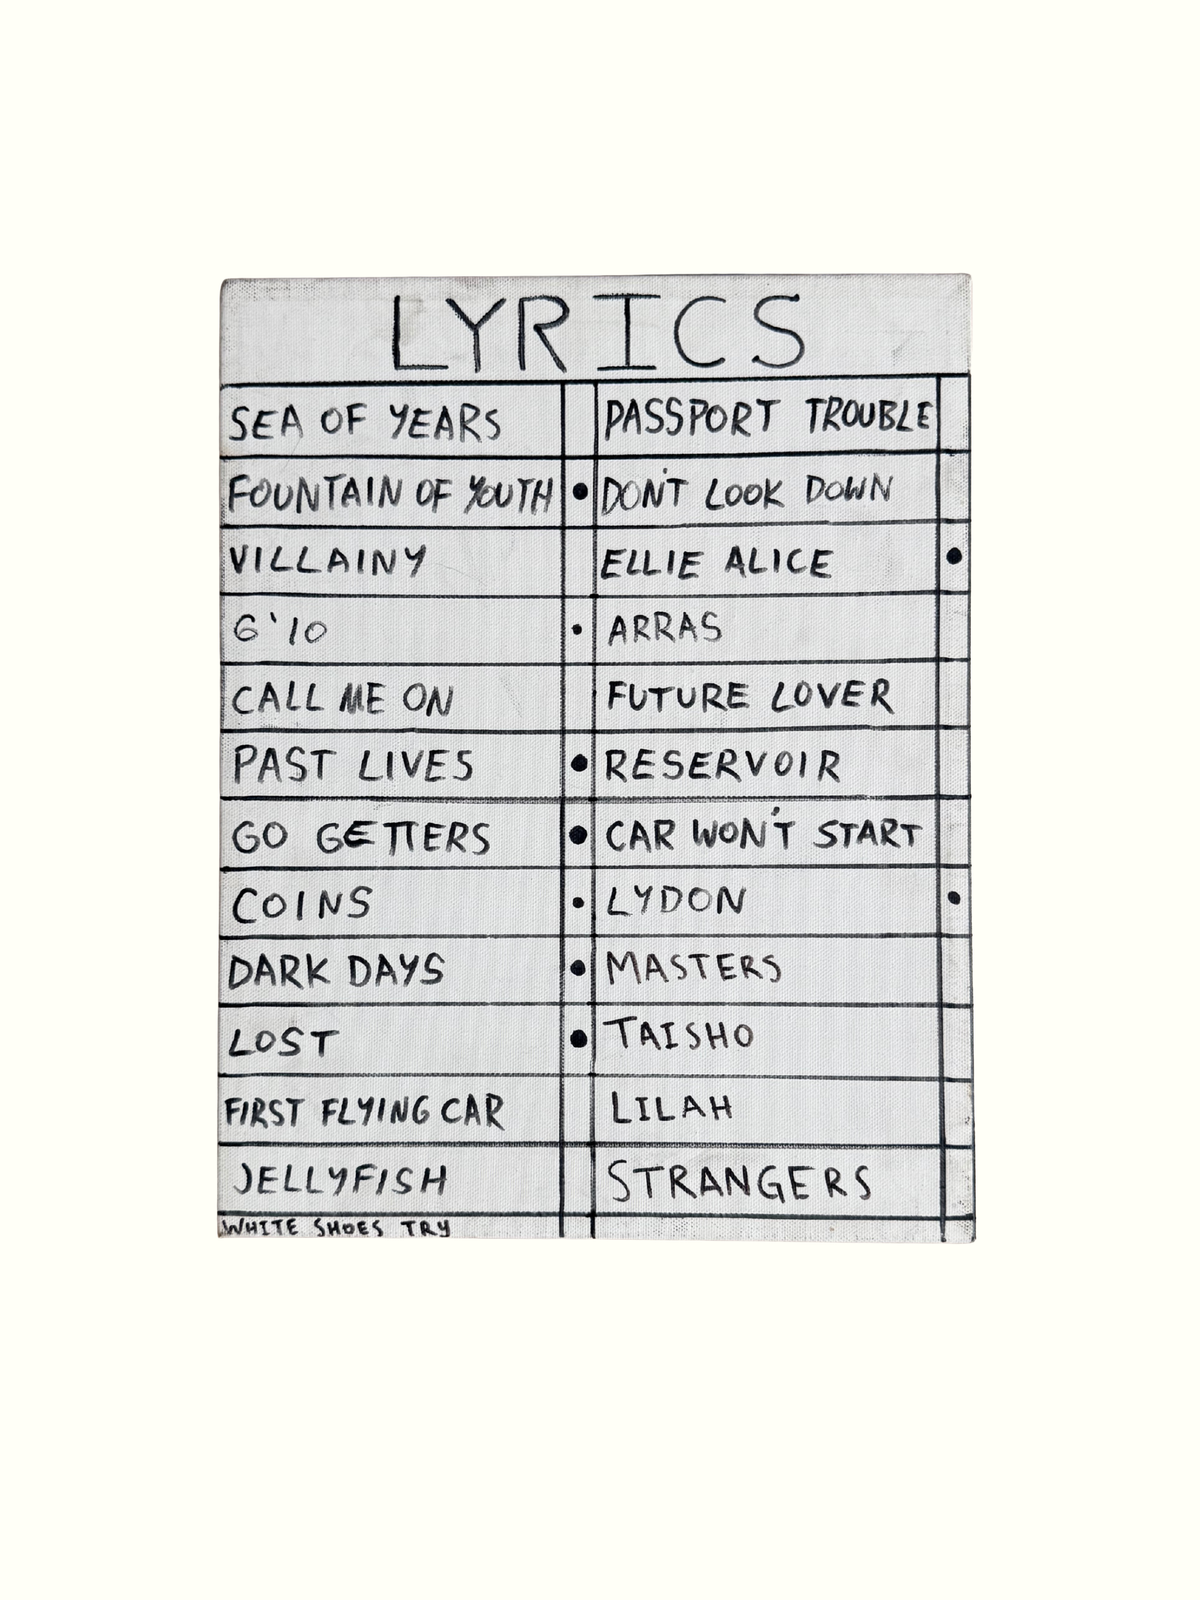 LYRICS
SEA OF YEARS
FOUNTAIN OF YOUTH
VILLAINY
6'10
CALL ME ON
PAST LIVES
GO GETTERS
COINS
DARK DAYS
LOST
FIRST FLYING CAR
JELLYFISH
WHITE SHOES TRY
PASSPORT TROUBLE
DON'T LOOK DOWN
ELLIE ALICE
ARRAS
FUTURE LOVER
RESERVOIR
CAR WON'T START
LYDON
MASTERS
TAISHO
LILAH
STRANGERS